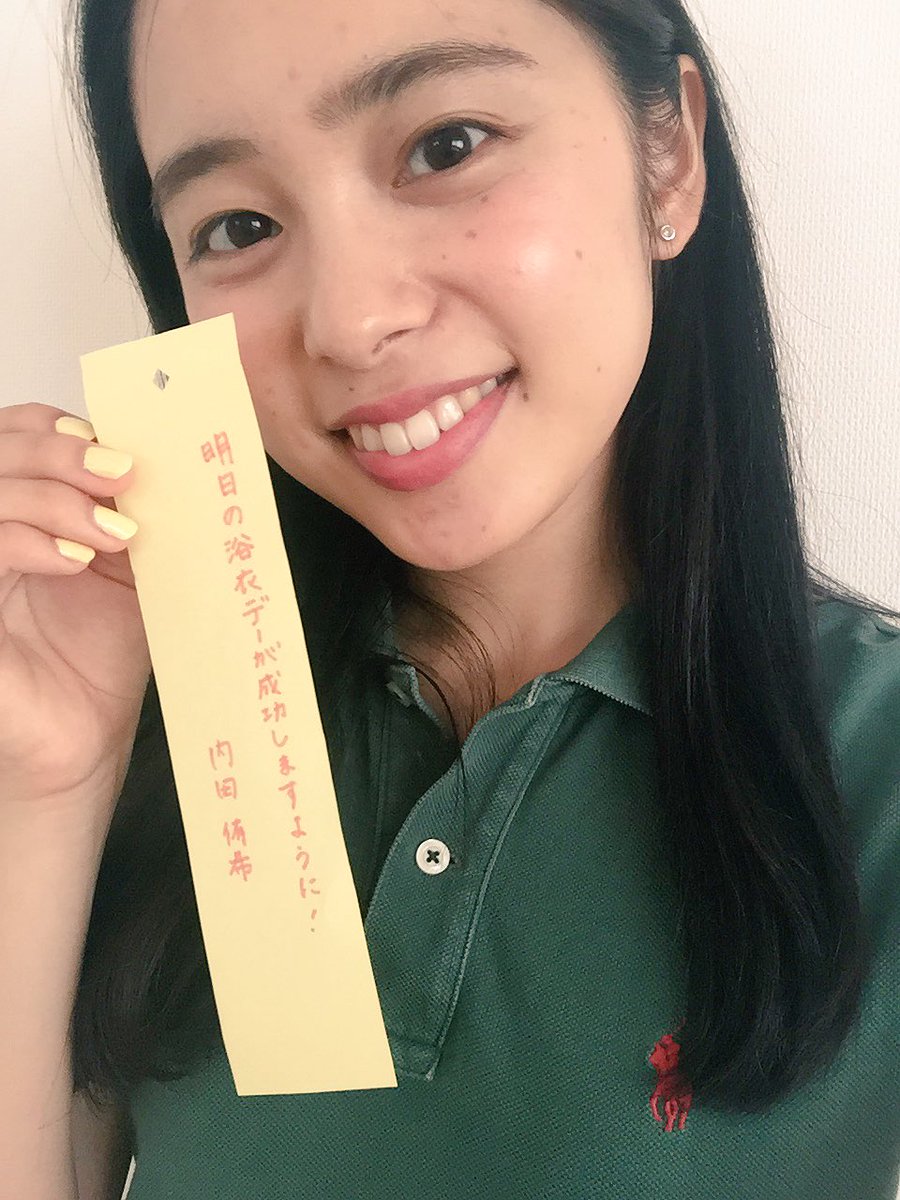 明日の浴衣デーが成功しますように!
内田 侑希